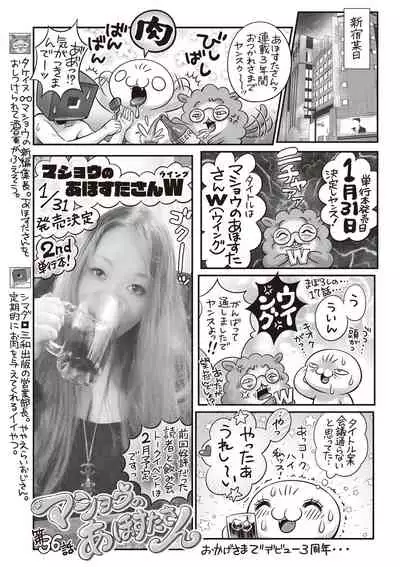 新宿某日
あほすたさんっ
連載3年間
おつかれさまで
ヤンスゥ
びしばし
肉
ばん
ばん
ばん
ああっ!?
気がつきま
んで~ッ
単行本発売日
1月31日
決定でヤンス!
タイトルは
マショウのあほすた
さんW(ウイング)
W
マショウの
あほすたさんW
ウイング
1/31
発売決定
2nd
単行本!
ゴク
まぼろしの…
17話…
ウイング
ういん
グ?
う
頭が
がんばって
通しましたで
ヤンスよっ!
タイトル案
会議通らない
と思ってた…
やったぁ
うれし~い
やけっ
あっコーク
ハイ
私ッス
前回好評だった
読者と飲み会
トークイベントは
2月予定
ですっ
マショウの
あほすたさん
第36話
おかげさまでデビュー3周年・・・
タケイス
マショウの新編集長。あほすたさんを
おしつけられて酒量がふえそう。
シマダ
三和出版の営業部長。ややえらいおじさん。
定期的にお肉を与えてくれるイイやつ。